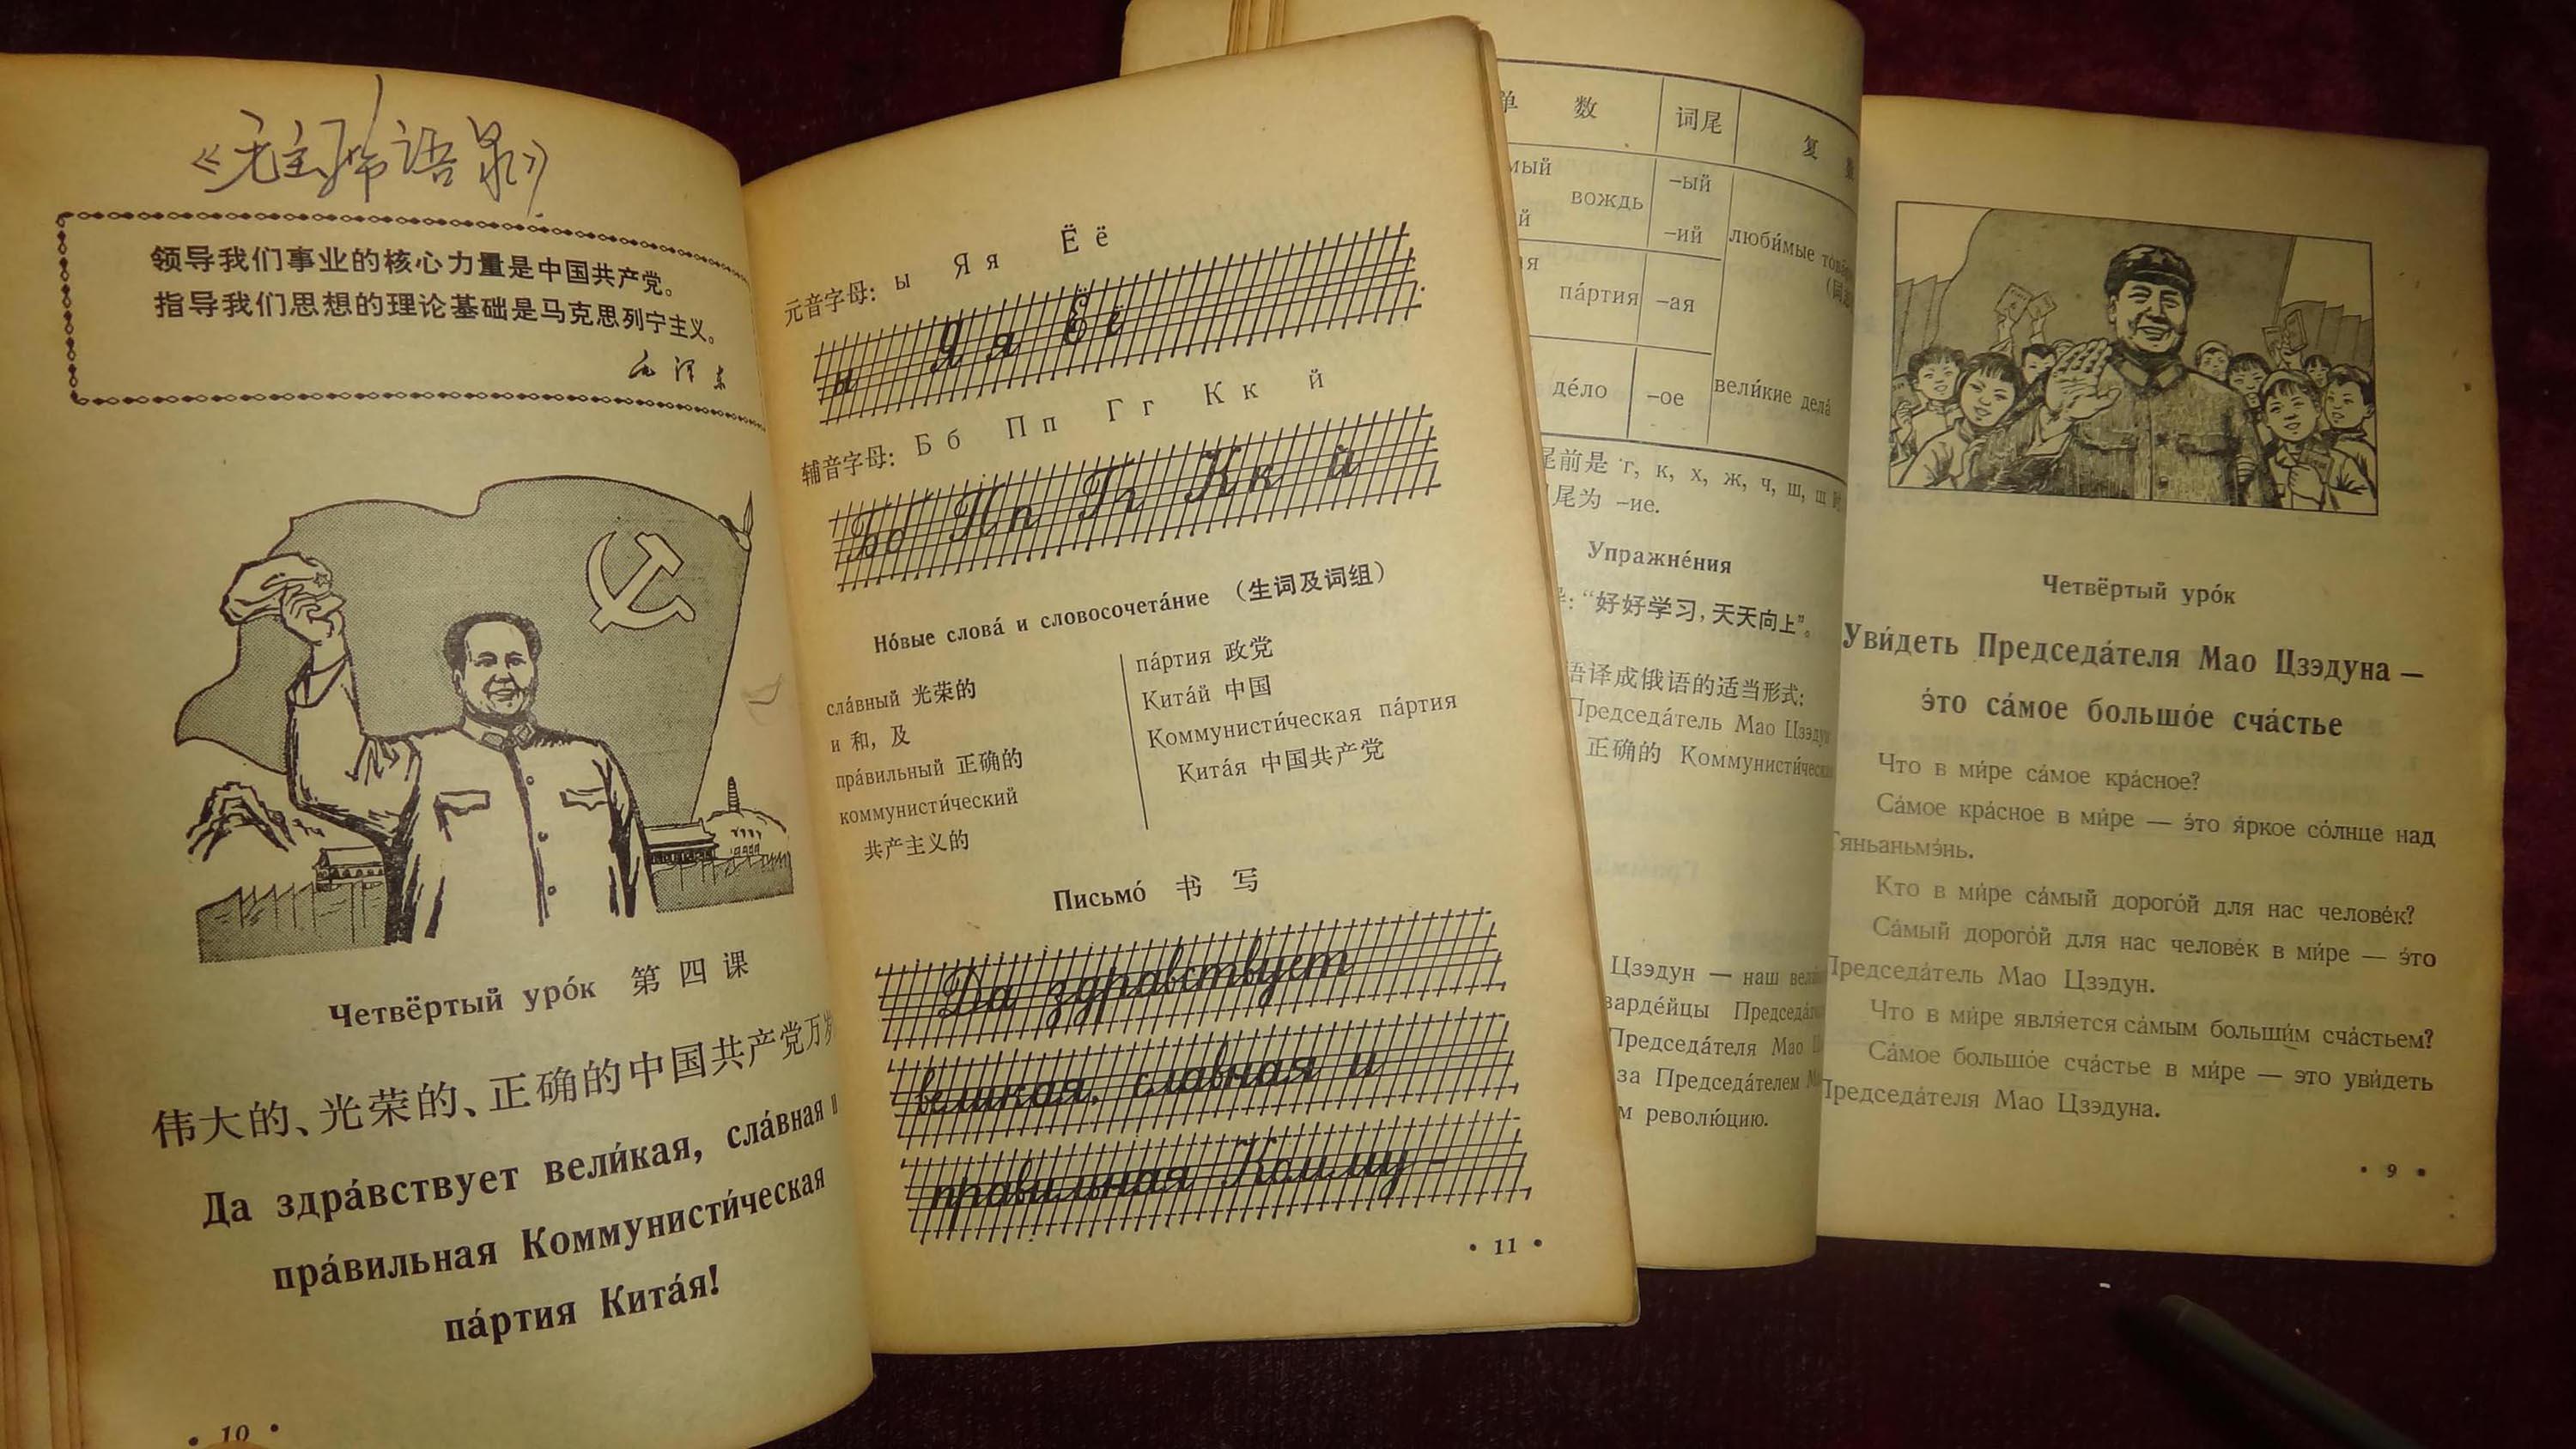 《毛主席语录》
领导我们事业的核心力量是中国共产党。
指导我们思想的理论基础是马克思列宁主义。
毛泽东
Четвёртый уро́к 第四课
伟大的、光荣的、正确的中国共产党万岁
Да здра́вствует вели́кая, сла́вная и
пра́вильная Коммунисти́ческая
па́ртия Кита́я!
• 10 •
元音字母: ы Я я Ё ё
ы Я я Ё ё
辅音字母: Б б П п Г г К к й
Б б П п Г г К к й
Но́вые слова́ и словосочета́ние (生词及词组)
сла́вный 光荣的
и 和, 及
пра́вильный 正确的
коммунисти́ческий
共产主义的
па́ртия 政党
Кита́й 中国
Коммунисти́ческая па́ртия
Кита́я 中国共产党
Письмо́ 书 写
Да здравствует
великая, славная и
правильная Комму-
• 11 •
单 数 词尾 复 数
мый
вождь -ый
й -ий
люби́мые
ая
па́ртия -ая
де́ло -ое вели́кие дела́
尾前是 г, к, х, ж, ч, ш, щ 时
尾为 -ие.
Упражне́ния
“好好学习, 天天向上”。
语译成俄语的适当形式:
Председа́тель Мао Цзэдун
正确的 Коммунисти́ческ
Цзэдун — наш вели
варде́йцы Председа́т
Председа́теля Мао
за Председа́телем
м револю́цию.
Четвёртый уро́к
Уви́деть Председа́теля Мао Цзэдуна —
э́то са́мое большо́е сча́стье
Что в ми́ре са́мое кра́сное?
Са́мое кра́сное в ми́ре — э́то я́ркое со́лнце над
Тяньаньмэ́нь.
Кто в ми́ре са́мый дорого́й для нас челове́к?
Са́мый дорого́й для нас челове́к в ми́ре — э́то
Председа́тель Мао Цзэдун.
Что в ми́ре явля́ется са́мым больши́м сча́стьем?
Са́мое большо́е сча́стье в ми́ре — это уви́деть
Председа́теля Мао Цзэдуна.
• 9 •